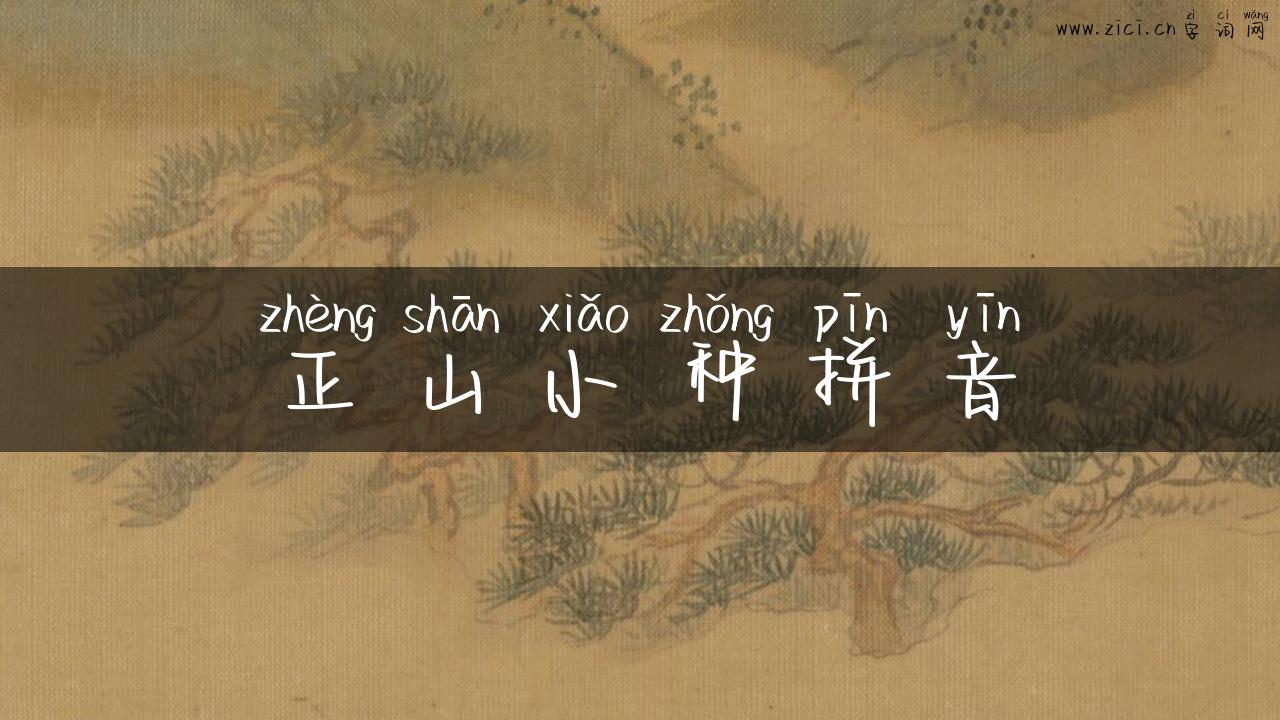 zì cí wǎng
www.zici.cn 字 词 网
zhèng shān xiǎo zhǒng pīn yīn
正 山 小 种 拼 音